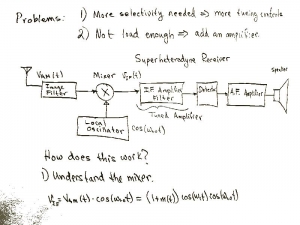 Problems: 1) More selectivity needed ⇒ more tuning controls
2) Not loud enough ⇒ add an amplifier
Superheterodyne Receiver
V_AM(t) Mixer V_IF(t) Speaker
Image Filter × I.F. Amplifier Filter Detector A.F. Amplifier
Tuned Amplifier
Local Oscillator cos(ω_LO t)
How does this work?
1) Understand the mixer.
V_IF = V_AM(t) · cos(ω_LO t) = (1+m(t)) cos(ω_c t) cos(ω_LO t)